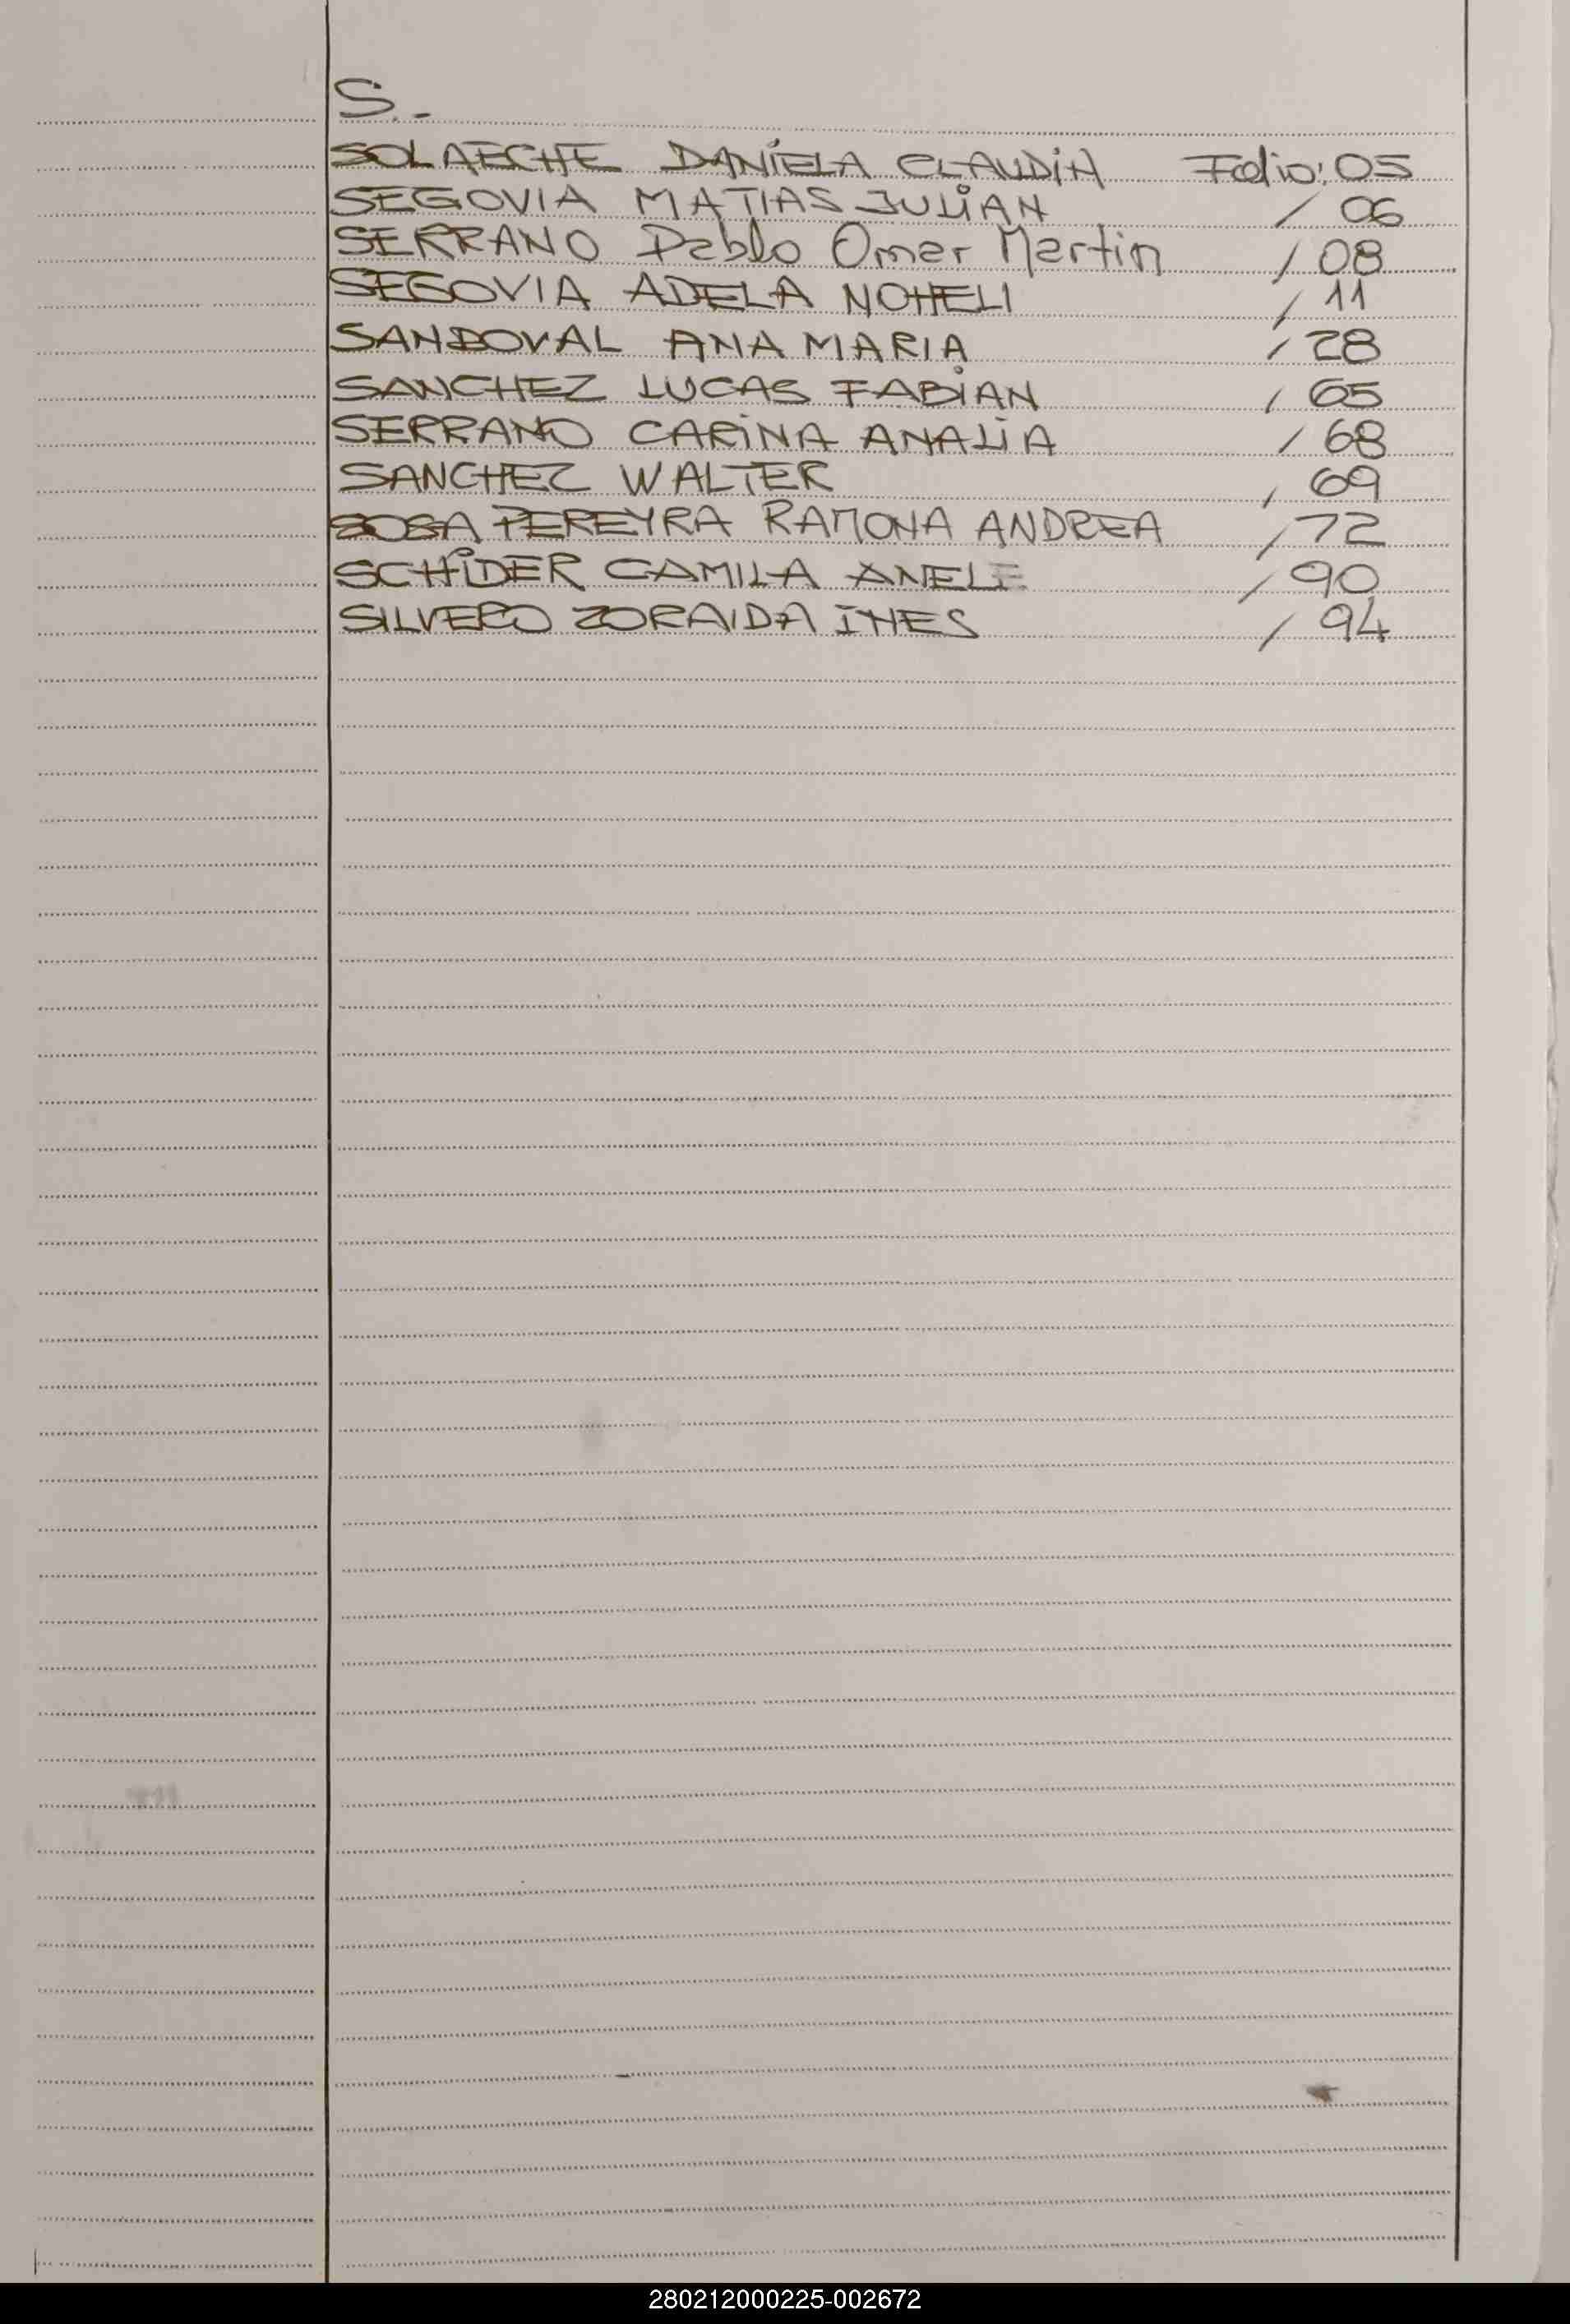 S.-
SOLAECHE DANiELA CLAUDiA Folio: 05
SEGOVIA MATIAS JULiAN / 06
SERRANO Pablo Omar Martin / 08
SEGOVIA ADELA NOHELI / 11
SANDOVAL ANA MARIA / 28
SANCHEZ LUCAS FABiAN / 65
SERRANO CARiNA ANALiA / 68
SANCHEZ WALTER / 69
SOSA PEREYRA RAMONA ANDREA / 72
SCHiDER CAMILA ANELE / 90
SILVERO ZORAIDA INES / 94
280212000225-002672